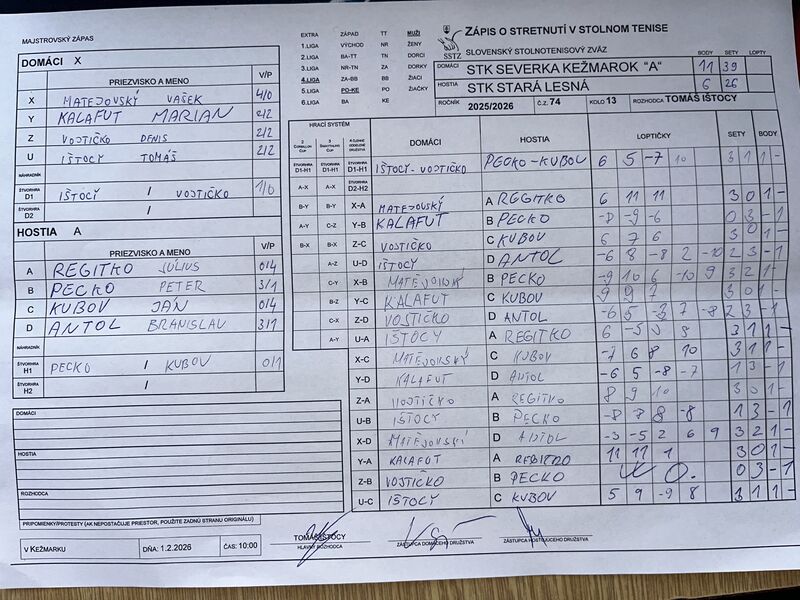 MAJSTROVSKÝ ZÁPAS
DOMÁCI X
PRIEZVISKO A MENO V/P
X MATEJOVSKÝ VAŠEK 4/0
Y KALAFUT MARIAN 2/2
Z VOJTIČKO DENIS 2/2
U IŠTOCY TOMÁŠ 2/2
NÁHRADNÍK
ŠTVORHRA D1 IŠTOCY / VOJTIČKO 1/0
ŠTVORHRA D2 /
HOSTIA A
PRIEZVISKO A MENO V/P
A REGITKO JÚLIUS 0/4
B PECKO PETER 3/1
C KUBOV JÁN 0/4
D ANTOL BRANISLAV 3/1
NÁHRADNÍK
ŠTVORHRA H1 PECKO / KUBOV 0/1
ŠTVORHRA H2 /
DOMÁCI
HOSTIA
ROZHODCA
PRIPOMIENKY/PROTESTY (AK NEPOSTAČUJE PRIESTOR, POUŽITE ZADNÚ STRANU ORIGINÁLU)
V KEŽMARKU DŇA: 1.2.2026 ČAS: 10:00
EXTRA ZÁPAD TT MUŽI
1.LIGA VÝCHOD NR ŽENY
2.LIGA BA-TT TN DORCI
3.LIGA NR-TN ZA DORKY
4.LIGA ZA-BB BB ŽIACI
5.LIGA PO-KE PO ŽIAČKY
6.LIGA BA KE
SSTZ
ZÁPIS O STRETNUTÍ V STOLNOM TENISE
SLOVENSKÝ STOLNOTENISOVÝ ZVÄZ
BODY SETY LOPTY
DOMÁCI STK SEVERKA KEŽMAROK "A" 11 39
HOSTIA STK STARÁ LESNÁ 6 26
ROČNÍK 2025/2026 Č.Z. 74 KOLO 13 ROZHODCA TOMÁŠ IŠTOCY
HRACÍ SYSTÉM DOMÁCI HOSTIA LOPTIČKY SETY BODY
ŠTVORHRA D1-H1 ŠTVORHRA D1-H1 ŠTVORHRA D1-H1 IŠTOCY - VOJTIČKO PECKO - KUBOV 6 5 -7 10 3 1 1 -
A-X A-X ŠTVORHRA D2-H2
B-Y B-Y X-A MATEJOVSKÝ A REGITKO 6 11 11 3 0 1 -
A-Y C-Z Y-B KALAFUT B PECKO -8 -9 -6 0 3 - 1
B-X B-X Z-C VOJTIČKO C KUBOV 6 7 6 3 0 1 -
A-Z U-D IŠTOCY D ANTOL -6 8 -8 2 -10 2 3 - 1
C-Y X-B MATEJOVSKÝ B PECKO -9 10 6 -10 9 3 2 1 -
B-Z Y-C KALAFUT C KUBOV 9 9 7 3 0 1 -
C-X Z-D VOJTIČKO D ANTOL -6 5 -3 7 -8 2 3 - 1
A-Y U-A IŠTOCY A REGITKO 6 -5 3 1 1 -
X-C MATEJOVSKÝ C KUBOV -7 6 8 10 3 1 1 -
Y-D KALAFUT D ANTOL -6 5 -8 -7 1 3 - 1
Z-A VOJTIČKO A REGITKO 8 9 10 3 0 1 -
U-B IŠTOCY B PECKO -8 -8 8 -8 1 3 - 1
X-D MATEJOVSKÝ D ANTOL -3 -5 2 6 9 3 2 1 -
Y-A KALAFUT A REGITKO 11 11 1 3 0 1 -
Z-B VOJTIČKO B PECKO W O. 0 3 - 1
U-C IŠTOCY C KUBOV 5 9 -9 8 3 1 1 -
TOMÁŠ IŠTOCY
HLAVNÝ ROZHODCA ZÁSTUPCA DOMÁCEHO DRUŽSTVA ZÁSTUPCA HOSŤUJÚCEHO DRUŽSTVA